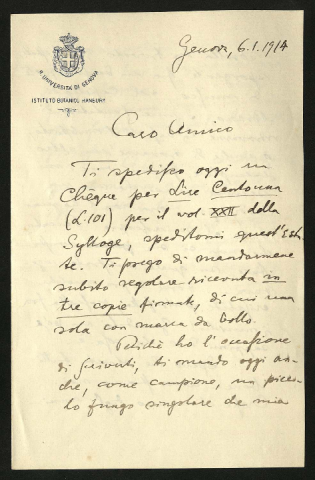 R. UNIVERSITÀ DI GENOVA
ISTITUTO BOTANICO HANBURY
Genova, 6.1.1914
Caro Amico
Ti spedisco oggi un
Chèque per Lire Centouna
(L. 101) per il vol. XXII della
Sylloge, speditomi quest'Esta-
te. Ti prego di mandarmene
subito regolare ricevuta in
tre copie firmate, di cui una
sola con marca da bollo.
Poichè ho l'occasione
di scriverti, ti mando oggi an-
che, come campione, un picco-
lo fungo singolare che mia